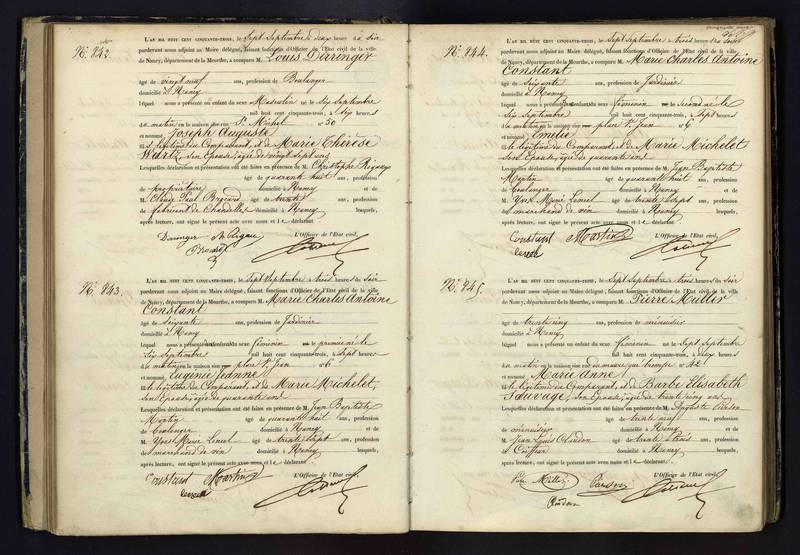 N° 842.
L'AN MIL HUIT CENT CINQUANTE-TROIS, le Sept Septembre à deux heures du soir
pardevant nous adjoint au Maire délégué, faisant fonctions d'Officier de l'Etat civil de la ville
de Nancy, département de la Meurthe, a comparu M. Louis Derringer
âgé de vingt neuf ans, profession de Boulanger
domicilié à Nancy
lequel nous a présenté un enfant du sexe Masculin né le Six Septembre
mil huit cent cinquante-trois, à Six heures
du matin en la maison rue St. Michel n° 50
et nommé Joseph Auguste
fils légitime du Comparant, et de Marie Thérèse
Wurtz, Son Epouse, âgée de vingt Sept ans
Lesquelles déclaration et présentation ont été faites en présence de M. Christophe
âgé de quarante huit ans, profession
de propriétaire domicilié à Nancy et de
M. Paul âgé de trente ans, profession
de fabricant de Chandelles domicilié à Nancy lesquels,
après lecture, ont signé le présent acte avec nous et le déclarant.
L'Officier de l'Etat civil,
N° 843.
L'AN MIL HUIT CENT CINQUANTE-TROIS, le Sept Septembre à trois heures du soir
pardevant nous adjoint au Maire délégué, faisant fonctions d'Officier de l'Etat civil de la ville
de Nancy, département de la Meurthe, a comparu M. Marie Charles Antoine
Constant
âgé de Soixante ans, profession de Jardinier
domicilié à Nancy
lequel nous a présenté un enfant du sexe féminin né première le
Six Septembre mil huit cent cinquante-trois, à Sept heures
du matin en la maison rue place St. Jean n° 6
et nommé Eugénie Jeanne
fille légitime du Comparant, et de Marie Michelet,
Son Epouse, âgée de quarante ans
Lesquelles déclaration et présentation ont été faites en présence de M. Jean Baptiste
Martin âgé de quarante huit ans, profession
de Boulanger domicilié à Nancy et de
M. Yves Marie âgé de trente Sept ans, profession
de marchand de vin domicilié à Nancy lesquels,
après lecture, ont signé le présent acte avec nous et le déclarant.
L'Officier de l'Etat civil,
Constant Martin
N° 844.
L'AN MIL HUIT CENT CINQUANTE-TROIS, le Sept Septembre à trois heures du soir
pardevant nous adjoint au Maire délégué, faisant fonctions d'Officier de l'Etat civil de la ville
de Nancy, département de la Meurthe, a comparu M. Marie Charles Antoine
Constant
âgé de Soixante ans, profession de Jardinier
domicilié à Nancy
lequel nous a présenté un enfant du sexe féminin né Seconde le
Six Septembre mil huit cent cinquante-trois, à Sept heures
du matin en la maison rue place St. Jean n° 6
et nommé Emélie
fille légitime du Comparant, et de Marie Michelet
Son Epouse, âgée de quarante ans
Lesquelles déclaration et présentation ont été faites en présence de M. Jean Baptiste
Martin âgé de quarante huit ans, profession
de Boulanger domicilié à Nancy et de
M. Yves Marie âgé de trente Sept ans, profession
de marchand de vin domicilié à Nancy lesquels,
après lecture, ont signé le présent acte avec nous et le déclarant.
L'Officier de l'Etat civil,
Constant Martin
N° 845.
L'AN MIL HUIT CENT CINQUANTE-TROIS, le Sept Septembre à trois heures du soir
pardevant nous adjoint au Maire délégué, faisant fonctions d'Officier de l'Etat civil de la ville
de Nancy, département de la Meurthe, a comparu M. Pierre Müller
âgé de trente cinq ans, profession de menuisier
domicilié à Nancy
lequel nous a présenté un enfant du sexe féminin né le Sept Septembre
mil huit cent cinquante-trois, à dix heures
du matin en la maison rue n° 42
et nommé Marie Anne
fille légitime du Comparant, et de Barbe Elisabeth
Sauvage, Son Epouse, âgée de trente cinq ans
Lesquelles déclaration et présentation ont été faites en présence de M. Auguste
âgé de trente neuf ans, profession
de menuisier domicilié à Nancy et de
M. Jean Louis Claudon âgé de trente ans, profession
de Coiffeur domicilié à Nancy lesquels,
après lecture, ont signé le présent acte avec nous et le déclarant.
L'Officier de l'Etat civil,
Claudon